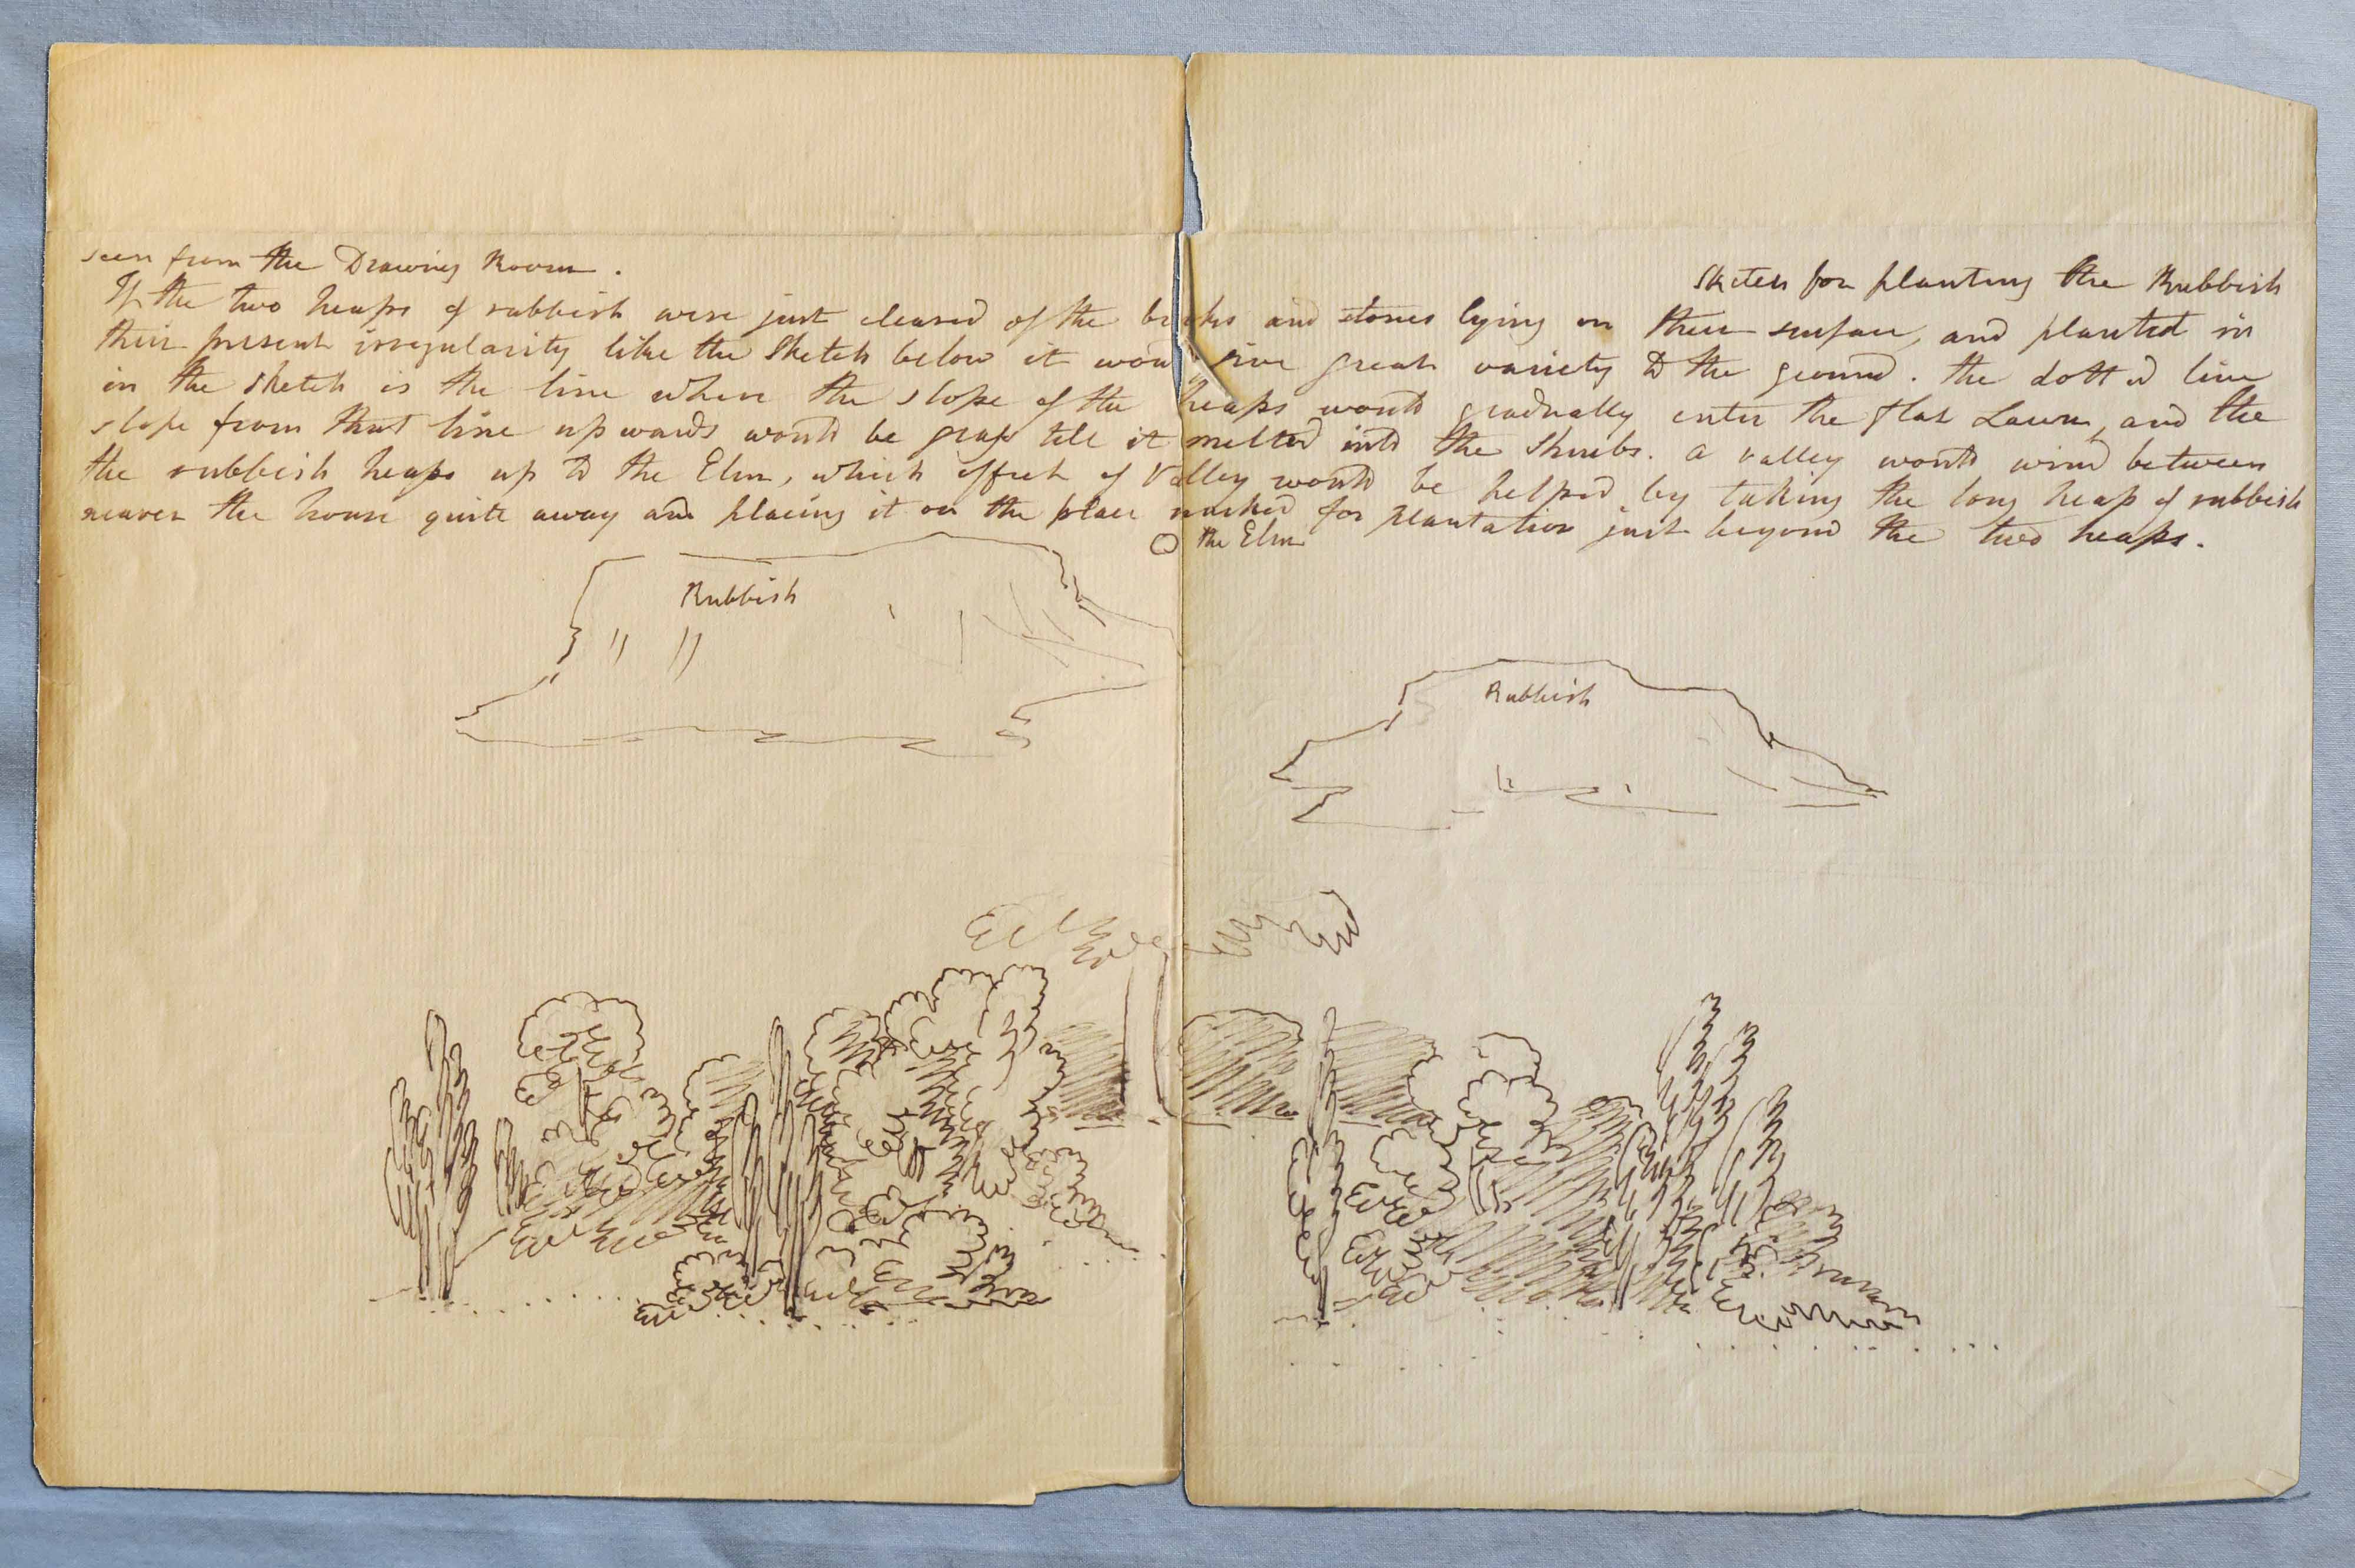 Sketch for planting the Rubbish
seen from the Drawing Room .
If the two heaps of rubbish were just cleared of the bricks and stones lying on their surface, and planted in
their present irregularity like the Sketch below it would give great variety to the ground . the dotted line
in the sketch is the line where the slope of the heaps would gradually enter the flat Lawn, and the
slope from that line upwards would be grass till it melted into the Shrubs. a valley would wind between
the rubbish heaps up to the Elm, which effect of Valley would be helped by taking the long heap of rubbish
nearer the house quite away and placing it on the place marked for plantation just beyond the two heaps.
the Elm
Rubbish
Rubbish